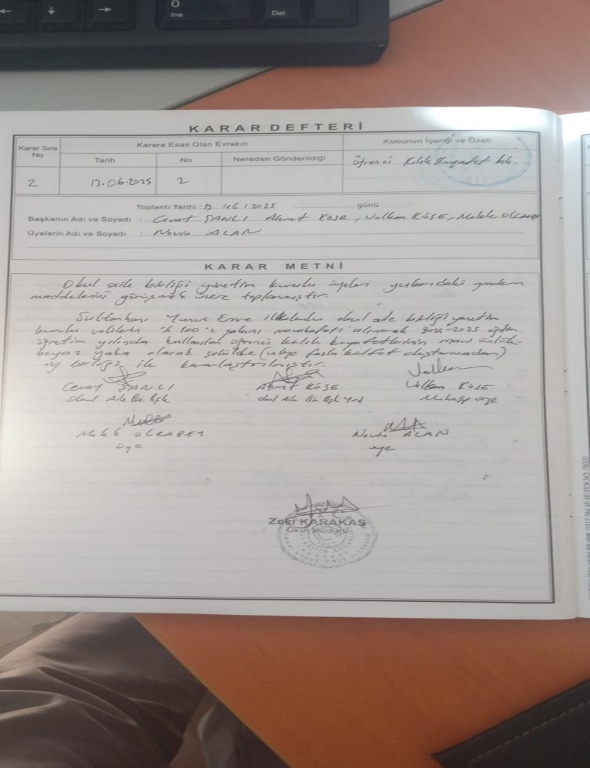 0
Ins
Del
KARAR DEFTERİ
Karar Sıra No
Karara Esas Olan Evrakın
Konunun İçeriği ve Özeti
Tarih
No
Nereden Gönderildiği
2
17.06.2025
2
öğrenci Kılık Kıyafet
Toplantı Tarihi :
günü
Başkanın Adı ve Soyadı : Cevat ŞANLI Ahmet KÖSE, Volkan KÖSE, Melek
Üyelerin Adı ve Soyadı : ALAN
KARAR METNİ
Okul aile birliği yönetim kurulu üyeleri yukarıdaki gündem
maddelerini görüşmek üzere toplanmıştır.
Sultanhanı Yunus Emre ilkokulu okul aile birliği yönetim
kurulu velilerin % 100'e yakını alınarak 2025 eğitim
öğretim yılında öğrenci kılık kıyafetlerinin mavi önlük
beyaz yaka olarak fazla külfet oluşturmadan)
oy birliği ile kararlaştırılmıştır.
Cevat ŞANLI
Okul Aile Bir. Bşk
Ahmet KÖSE
Okul Aile Bir. Bşk Yrd
Volkan KÖSE
Muhasip üye
Melek
üye
ALAN
üye
Zeki KARAKAŞ
Okul Müdürü